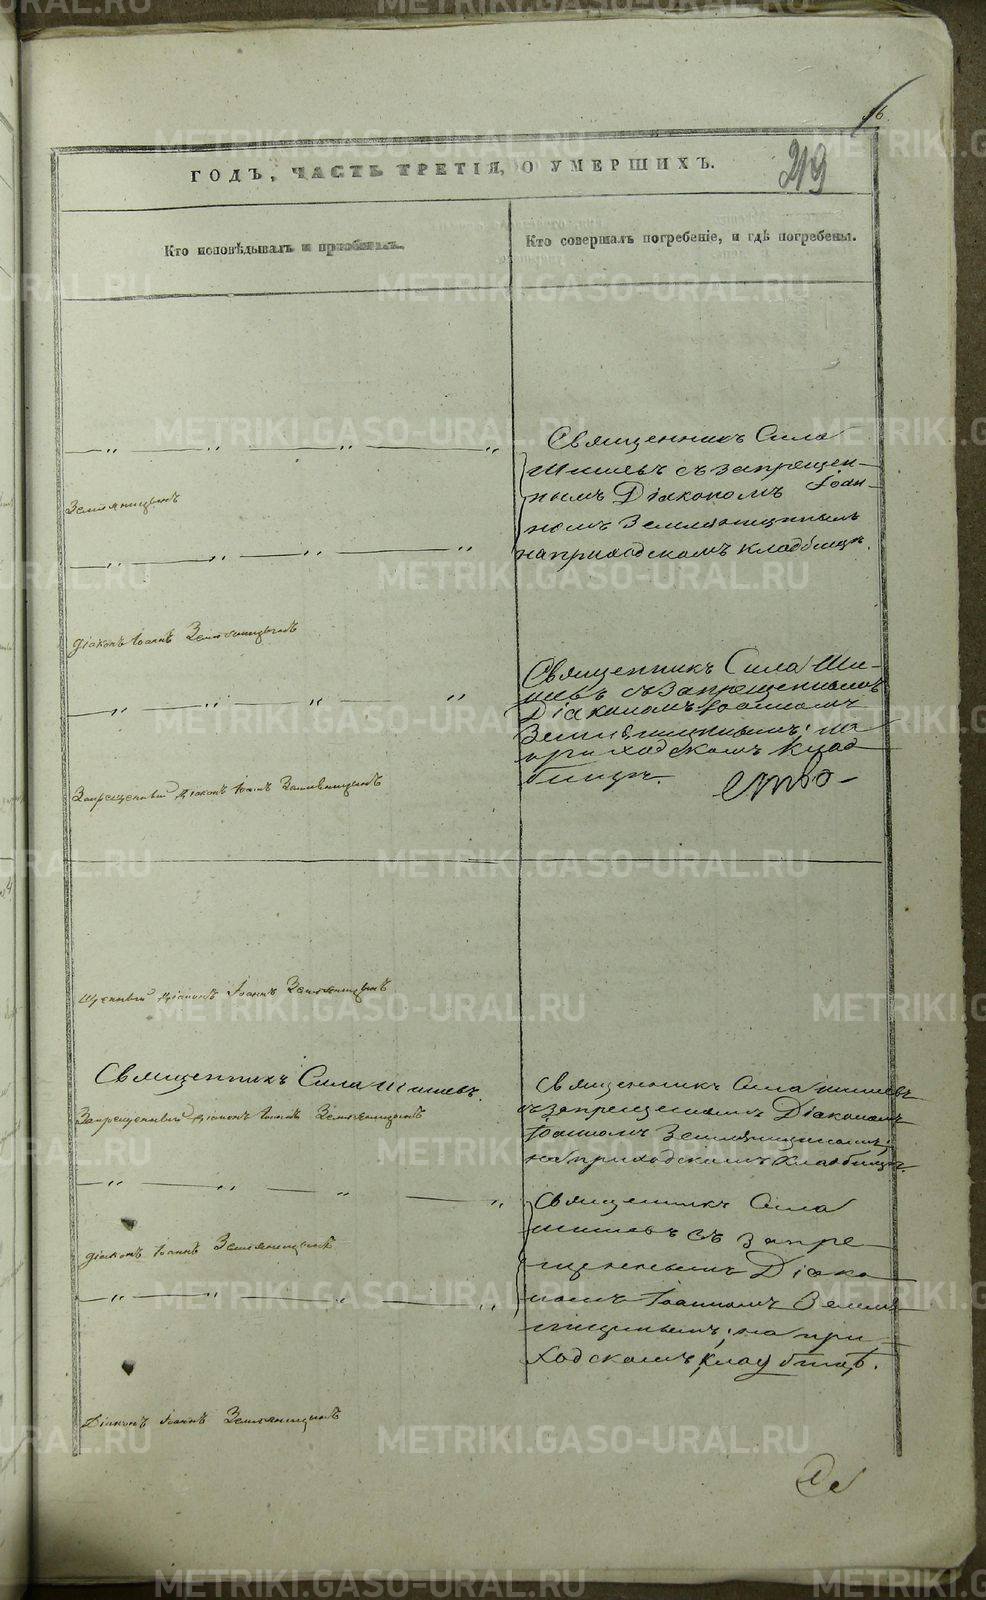 16.
219
ГОДЪ, ЧАСТЬ ТРЕТІЯ, О УМЕРШИХЪ.
Кто исповѣдывалъ и пріобщалъ.
Кто совершалъ погребеніе, и гдѣ погребены.
Священникъ Сила
Шишевъ съ запрещен-
нымъ Діакономъ Іоан-
номъ Земляницынымъ
на приходскомъ кладбищѣ.
Земляницынъ
діаконъ Іоаннъ Земляницынъ
Священникъ Сила Ши-
шевъ съ запрещеннымъ
Діакономъ Іоанномъ
Земляницынымъ; на
приходскомъ клад-
бищѣ.
Запрещенный діаконъ Іоаннъ Земляницынъ
щенный діаконъ Іоаннъ Земляницынъ
Священникъ Сила Шишевъ.
Запрещенный діаконъ Іоаннъ Земляницынъ
Священникъ Сила Шишевъ
съ запрещеннымъ Діакономъ
Іоанномъ Земляницынымъ;
на приходскомъ кладбищѣ.
Священникъ Сила
Шишевъ съ запре-
щеннымъ Діако-
номъ Іоанномъ Земля
ницынымъ; на при-
ходскомъ кладбищѣ.
діаконъ Іоаннъ Земляницынъ
Діаконъ Іоаннъ Земляницынъ
METRIKI.GASO-URAL.RU